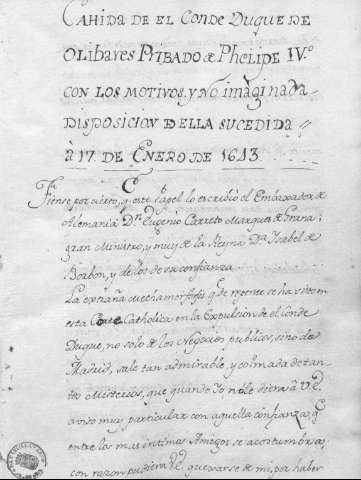 CAHIDA DE EL CONDE DUQUE DE
OLIBARES PRIBADO de PHELIPE IV.º
CON LOS MOTIVOS, y NO imaginada
DISPOSICION DE ELLA SUCEDIDA
à 17 DE ENERO DE 1643
Tiene por cierto, q este Papel lo escribió el Embaxador de
Alemania Dn. Eugenio Carreto Marques de Grana;
gran Ministro, y muy de la Reyna Dª. Isabel de
Borbon, y de los de su confianza
La extraña Methamorfosis q de repente se ha visto en
esta Corte Catholica en la Expulsion de el Conde
Duque, no solo de los Negocios publicos, sino de
Madrid, sale tan admirable, y colmada de tan
tos Misterios, que quando Yo no le diera à V.E.
aviso muy particular con aquella confianza, q
entre los mas intimos Amigos se acostumbra;
con razon pudiera V.E. quexarse de mi, por haber